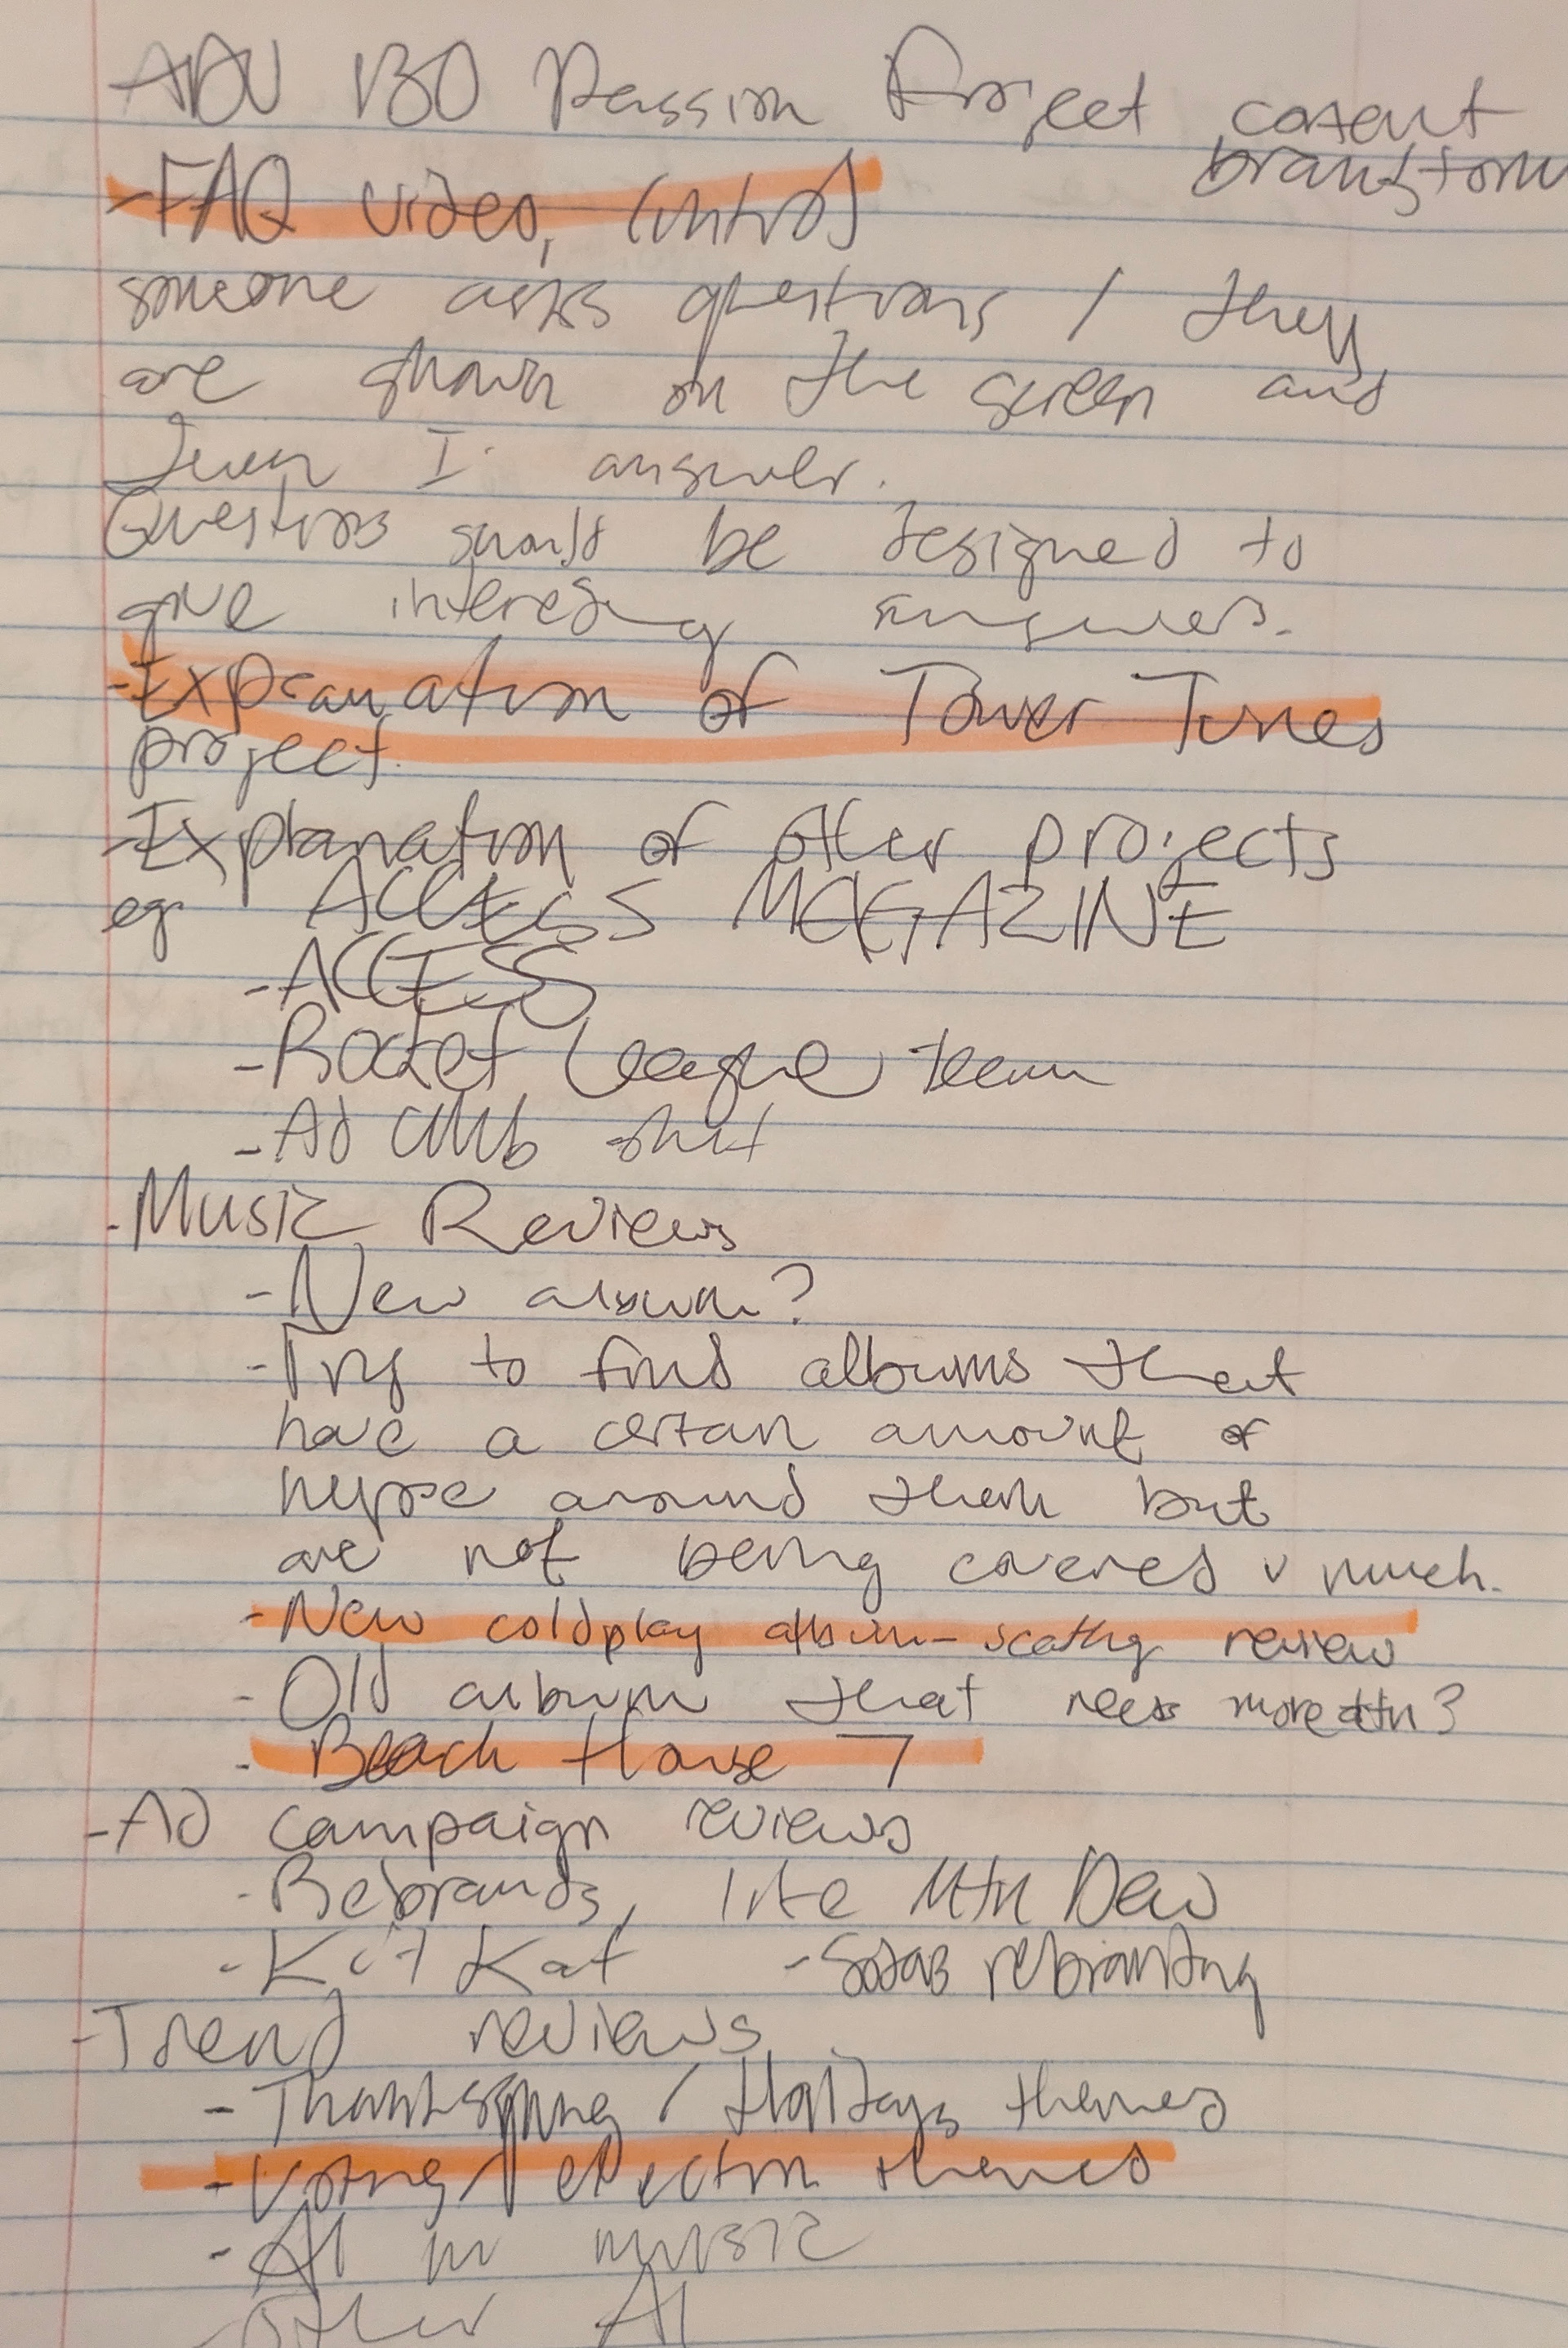 ADV 130 Passion Project content
brainstorm
-FAQ video, (intro)
someone asks questions / they
are shown on the screen and
then I answer.
Questions should be designed to
give interesting answers.
-Explanation of Tower Tunes
project.
-Explanation of other projects
eg ACCESS MAGAZINE
-ACCESS
-Rocket League team
-Ad club shit
-Music Reviews
-New album?
-Try to find albums that
have a certain amount of
hype around them but
are not being covered v much.
-New coldplay album- scathing review
-Old album that needs more attn?
- Beach House 7
-Ad campaign reviews
-Rebrands, like Mtn Dew
-Kit Kat -Sodas rebranding
-Trend reviews
-Thanksgiving / Holidays themes
-Voting / election themes
-AI in music
-Other AI